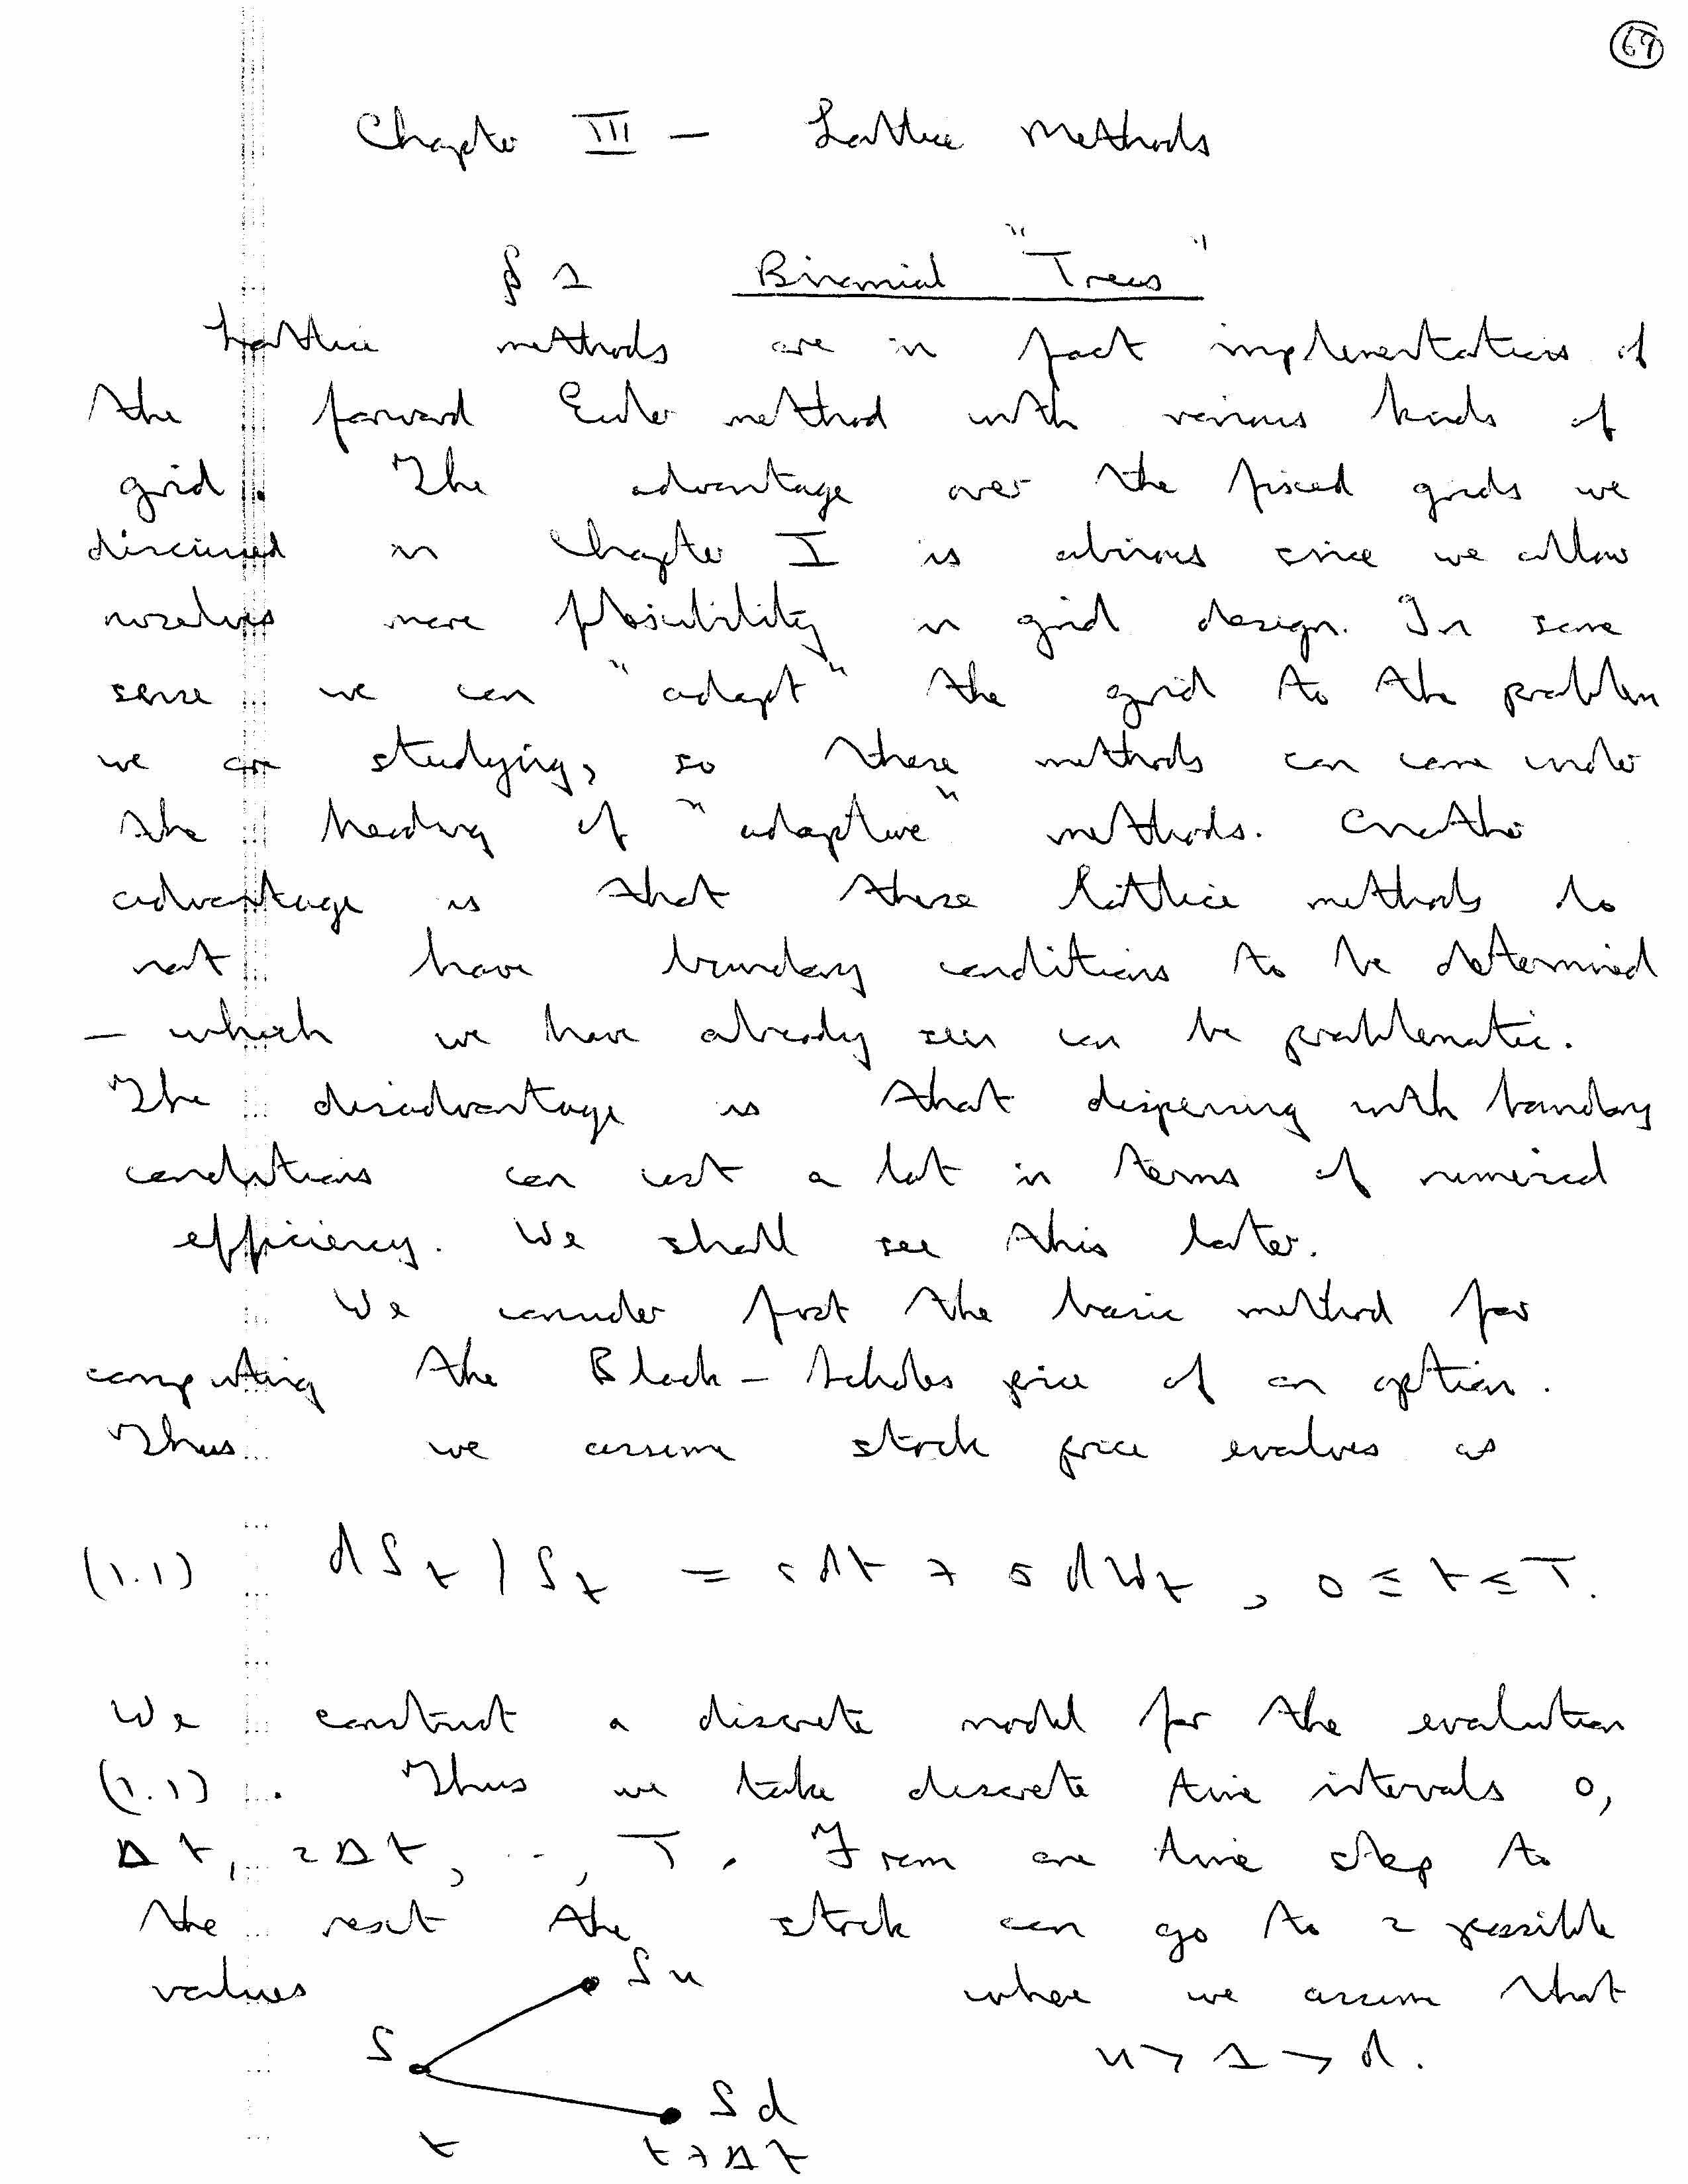 69
Chapter III - Lattice Methods
§ 1 Binomial "Trees"
Lattice methods are in fact implementations of
the forward Euler method with various kinds of
grid. The advantage over the fixed grids we
discussed in Chapter I is obvious since we allow
ourselves more flexibility in grid design. In some
sense we can "adapt" the grid to the problem
we are studying, so these methods can come under
the heading of "adaptive" methods. Another
advantage is that these lattice methods do
not have boundary conditions to be determined
- which we have already seen can be problematic.
The disadvantage is that dispensing with boundary
conditions can cost a lot in terms of numerical
efficiency. We shall see this later.
We consider first the basic method for
computing the Black-Scholes price of an option.
Thus we assume stock price evolves as
(1.1) dS_t / S_t = r dt + σ dW_t , 0 ≤ t ≤ T.
We construct a discrete model for the evolution
(1.1). Thus we take discrete time intervals 0,
Δt, 2Δt, .., T. From one time step to
the next the stock can go to 2 possible
values where we assume that
Su
S
u > 1 > d.
Sd
t t+Δt